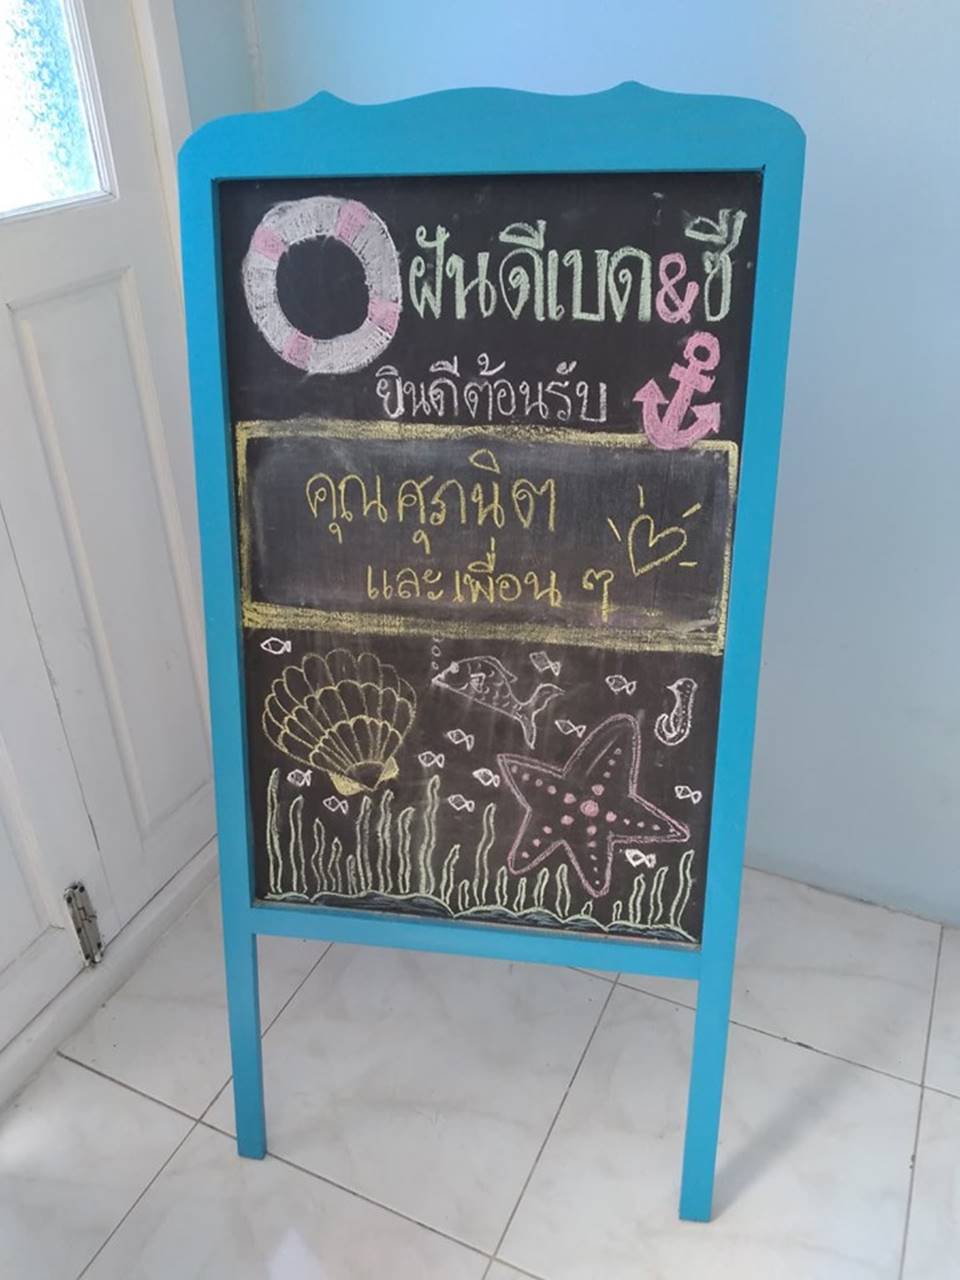 ฝันดีเบด&ซี
ยินดีต้อนรับ
คุณศุภนิต
และเพื่อน ๆ